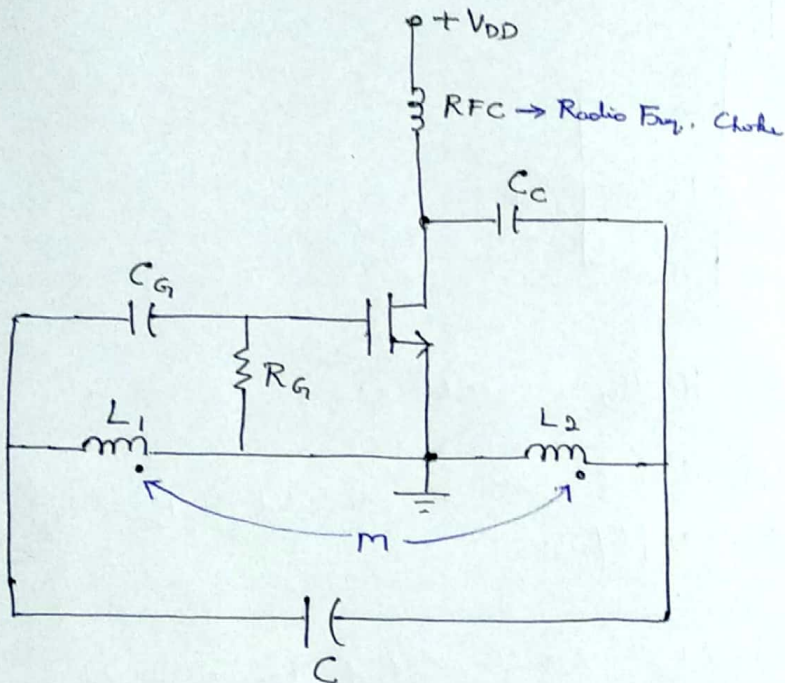 + VDD
RFC → Radio Frq. Choke
CC
CG
RG
L1
L2
m
C